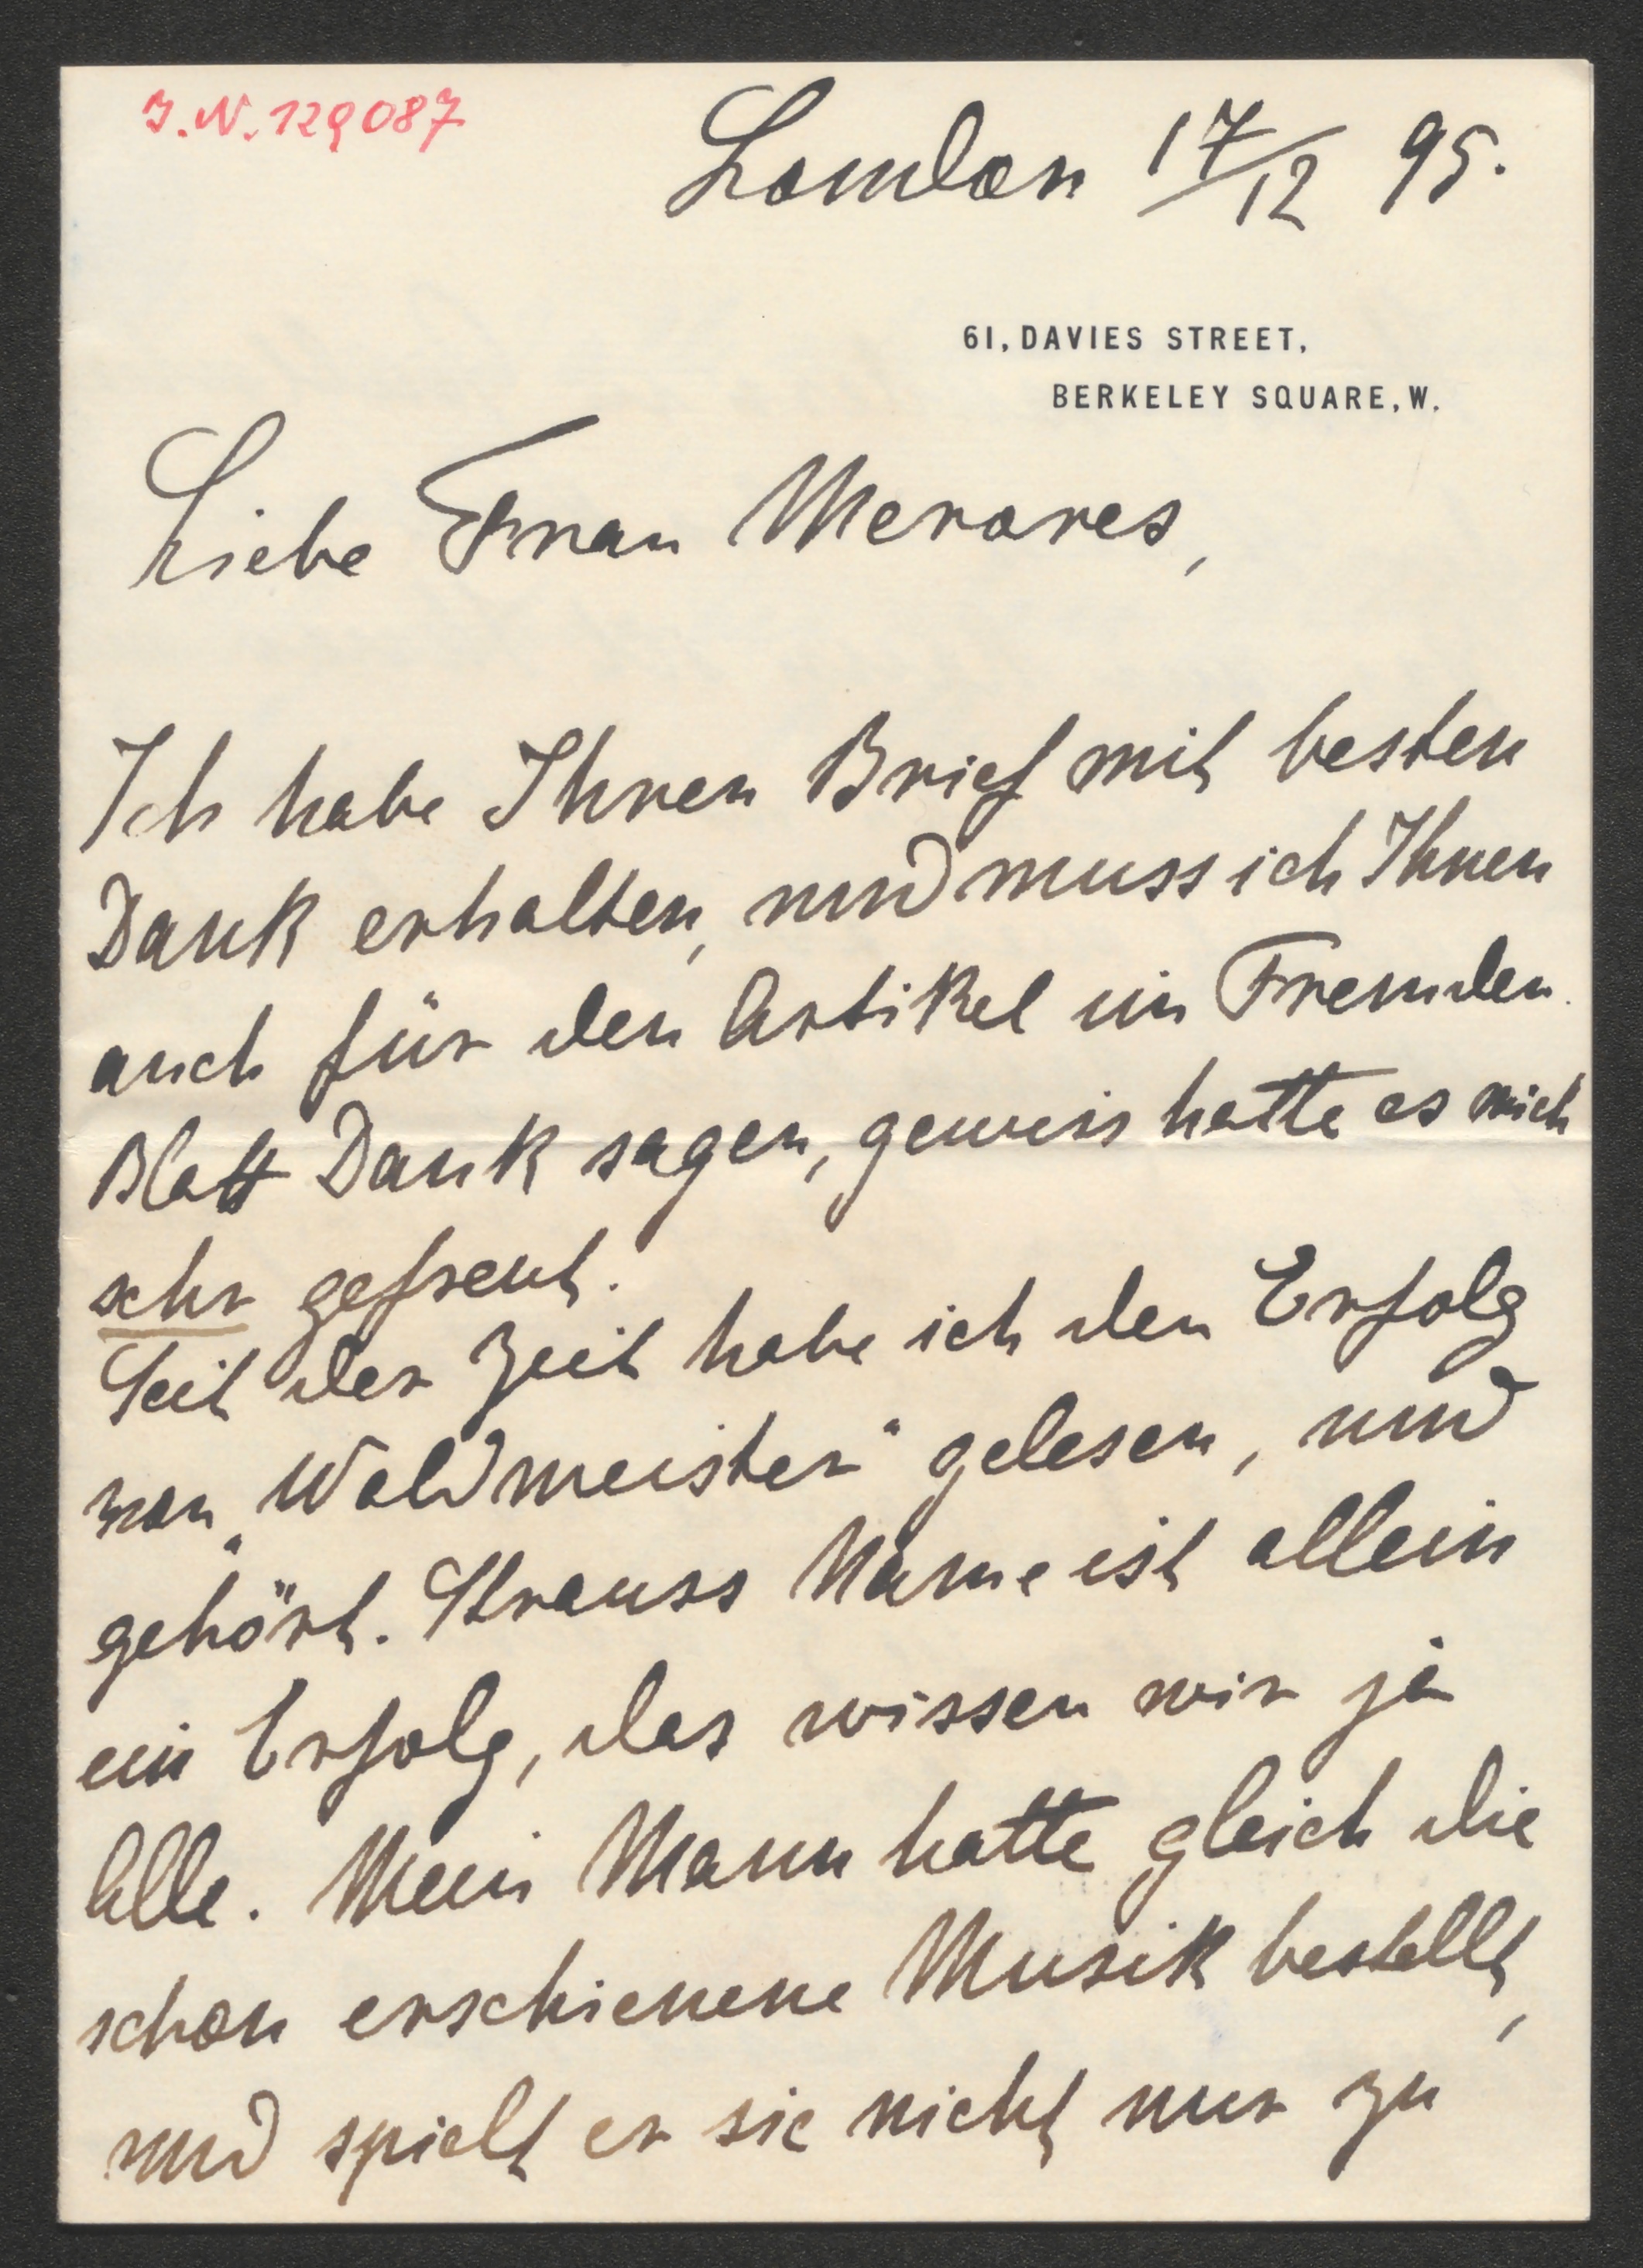 I.N. 129087
London 17/12 95.
61, DAVIES STREET,
BERKELEY SQUARE, W.
Liebe Frau Merores,
Ich habe Ihren Brief mit besten
Dank erhalten, und muss ich Ihnen
auch für den Artikel im Fremden
Blatt Dank sagen, gewiss hatte es mich
sehr gefreut.
Seit der Zeit habe ich den Erfolg
von „Waldmeister“ gelesen, und
gehört. Strauss Name ist allein
ein Erfolg, das wissen wir ja
Alle. Mein Mann hatte gleich die
schon erschienene Musik bestellt,
und spielt er sie nicht nur zu